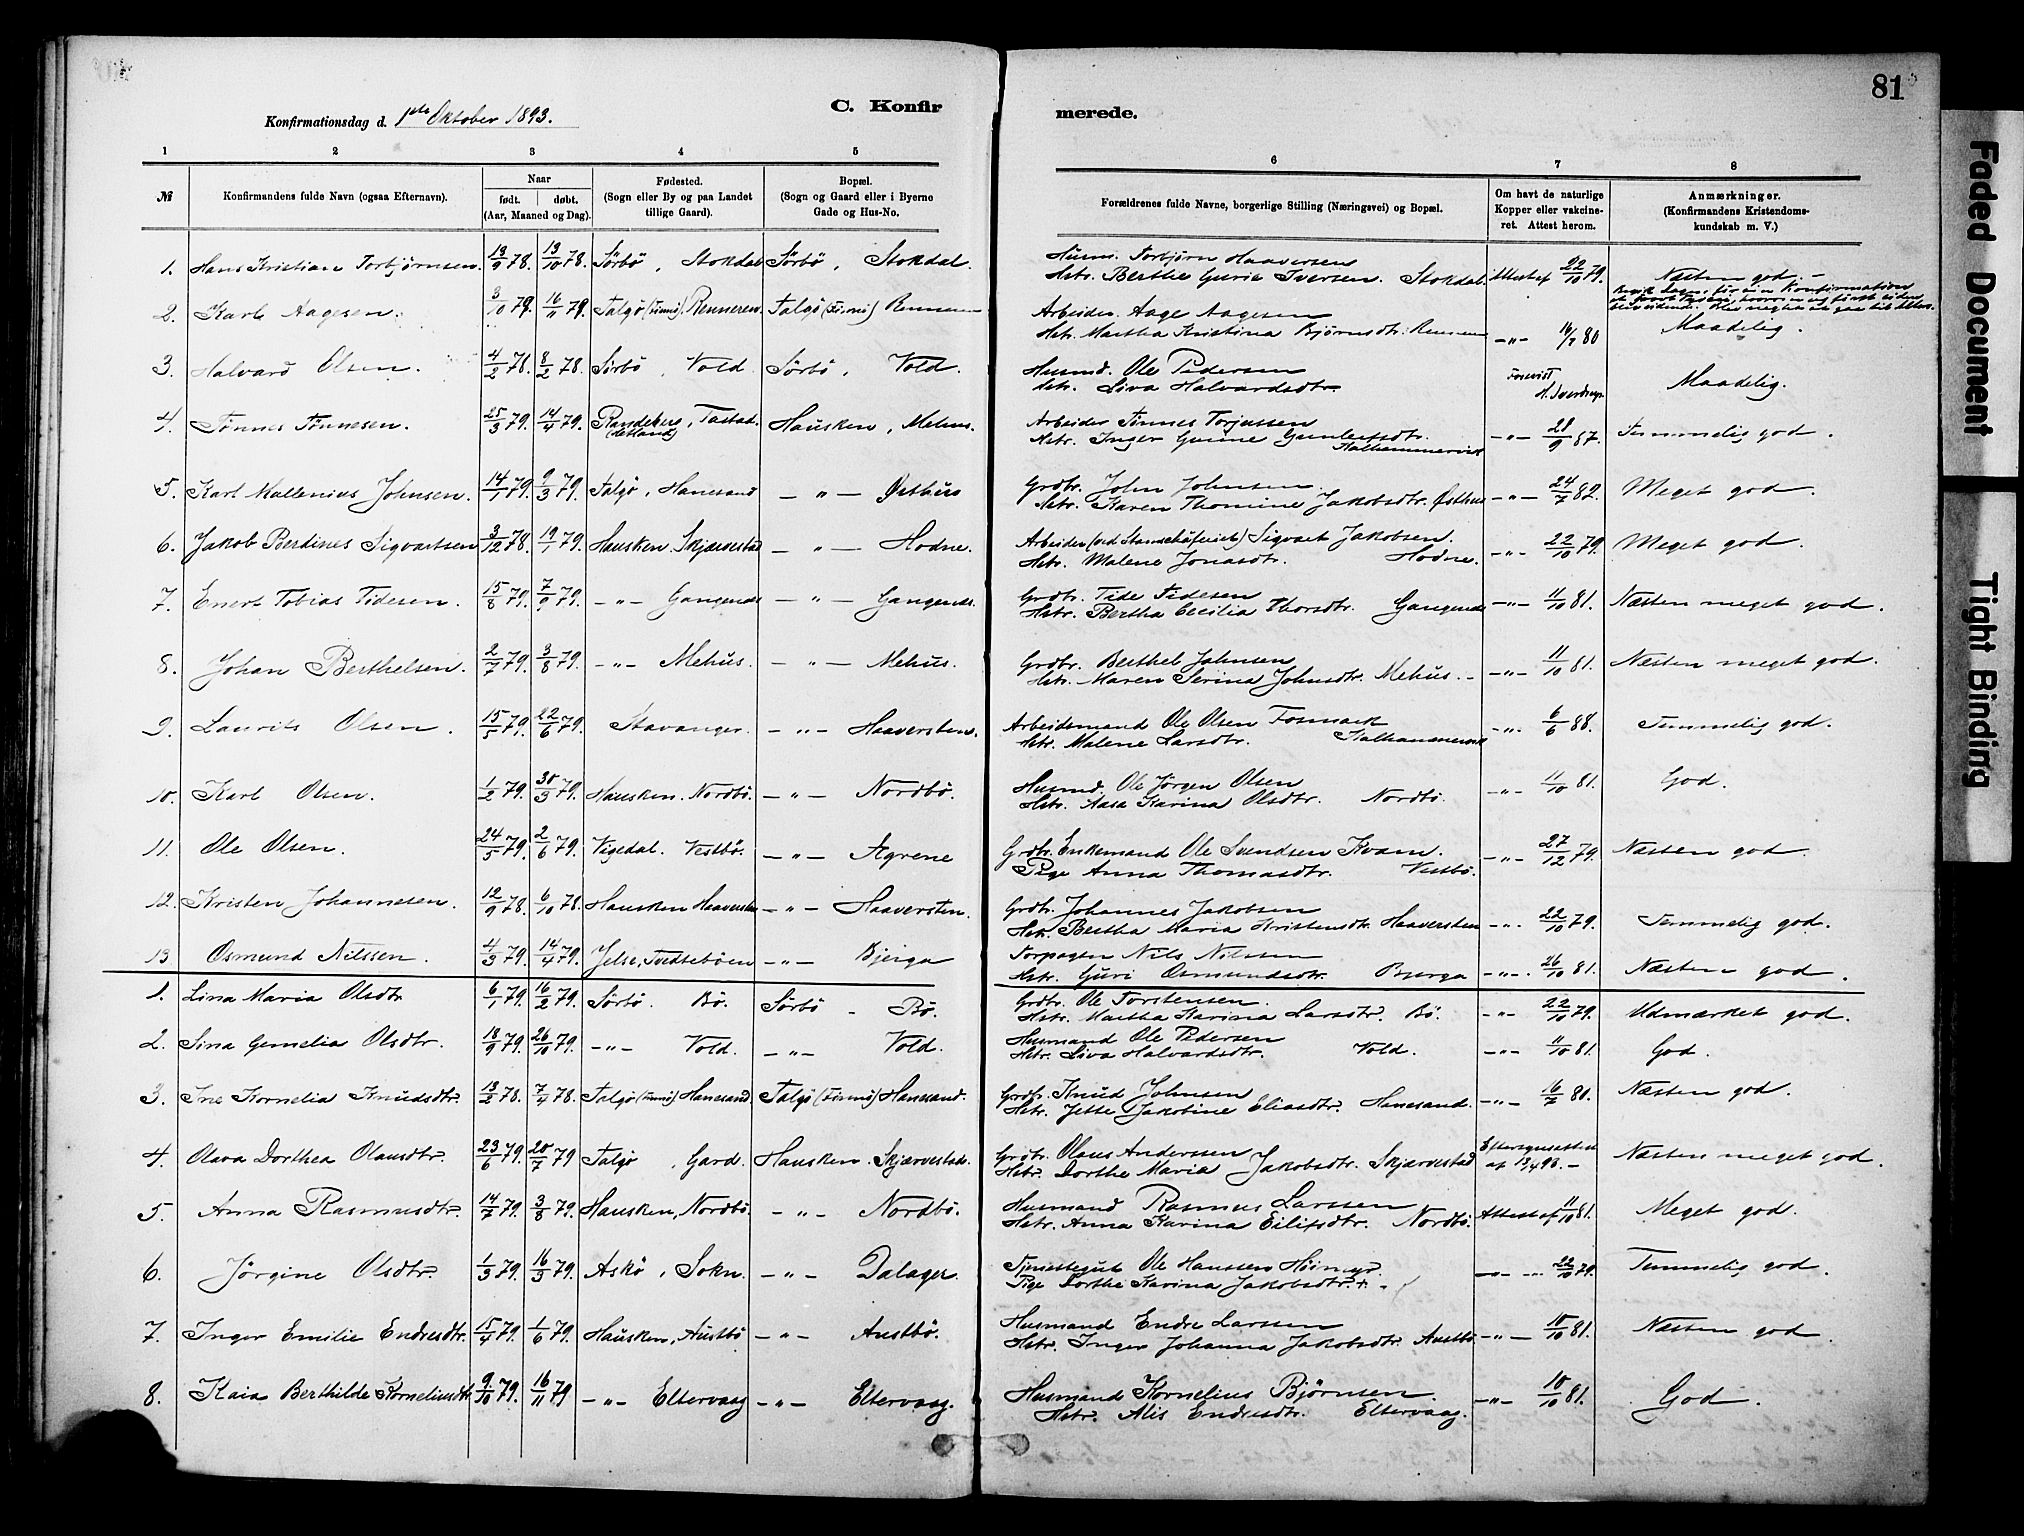 81
Konfirmationsdag d. 1ste Oktober 1893.
C. Konfir
merede.
1 2 3 4 5 6 7 8
№
Konfirmandens fulde Navn (ogsaa Efternavn).
Naar
født. døbt.
(Aar, Maaned og Dag).
Fødested.
(Sogn eller By og paa Landet
tillige Gaard).
Bopæl.
(Sogn og Gaard eller i Byerne
Gade og Hus-No.
Forældrenes fulde Navne, borgerlige Stilling (Næringsvei) og Bopæl.
Om havt de naturlige
Kopper eller vakcine-
ret. Attest herom.
Anmærkninger.
(Konfirmandens Kristendoms-
kundskab m. V.)
1. Hans Kristian Torbjørnsen. 13/9 78. 13/10 78. Sørbø, Stokdal Sørbø, Stokdal.
Husm. Torbjørn Haaversen
Hstr. Berthe Gurie Iversen. Stokdal. Attest af 22/10 79. Næsten god. -
2. Karl Aagesen. 3/10 79. 16/11 79. Talgø (Finnø). Renneren. Talgø (Finnø) Renneren
Arbeider. Aage Aagesen
Hstr. Martha Kristina Bjørnsdtr. -"- 16/7 80 Maadelig.
3. Halvard Olsen. 4/2 78. 8/2 78. Sørbø, Vold Sørbø, Vold.
Husmd. Ole Pedersen
Hstr. Siva Halvardsdtr. Forevist Maadelig.
4. Tønnes Tønnesen. 25/3 79. 14/4 79. Randeberg, Tastad. Hausken, Mehus.
(Hetland)
Arbeider Tønnes Torjussen
Hstr. Inger Gurine -"- 28/9 87. Temmelig god.
Kalhammervik
5. Karl Mallenius Johnsen. 14/1 79. 9/3 79. Talgø, Hanesand -"- Østhus
Grdbr. John Johnsen.
Hstr. Karen Thomine Jakobsdtr. Østhus -"- 24/7 82. Meget god.
6. Jakob Berdines Sigvartsen 3/12 78. 19/1 79. Hausken Skjærvestad -"- Hodne.
Arbeider Sigvart Jakobsen.
Hstr. Malene Jonasdtr. Hodne. -"- 22/10 79. Meget god.
7. Enert Tobias Tidesen. 15/8 79. 7/9 79. -"- Gangenæs -"- Gangenæs.
Grdbr. Tide Tidesen
Hstr. Bertha Cecilia Thorsdtr. Gangenæs -"- 11/10 81. Næsten meget god.
8. Johan Berthelsen. 2/7 79. 3/8 79. -"- Mehus. -"- Mehus.
Grdbr. Berthel Johnsen
Hstr. Maren Serina Johnsdtr. Mehus. -"- 11/10 81. Næsten meget god.
9. Laurits Olsen. 15/5 79. 22/6 79. Stavanger. -"- Haaversten.
Arbeidsmand Ole Olsen Fosmark
Hstr. Malene Larsdtr. Kalhammervik -"- 6/6 88. Temmelig god.
10. Karl Olsen. 1/2 79. 30/3 79. Hausken. Nordbø. -"- Nordbø.
Husmd. Ole Jørgen Olsen
Hstr. Aasa Karina Olsdtr. Nordbø. -"- 11/10 81. God.
11. Ole Olsen. 24/5 79. 2/6 79. Vigedal. Vestbø. -"- Agrene
Grdbr. Enkemand Ole Svendsen Kvam.
Pige Anna Thomasdtr. Vestbø. -"- 27/12 79. Næsten god.
12. Kristen Johannesen. 12/9 78. 6/10 78. Hausken Haaversten -"- Haaversten.
Grdbr. Johannes Jakobsen
Hstr. Bertha Maria Kristensdtr. Haaversten -"- 22/10 79. Temmelig god.
13. Osmund Nilssen. 4/3 79. 14/4 79. Jelse, Tvedtebøen -"- Bjerga
Nils Nilssen
Hstr. Guri Osmundsdtr. Bjerga -"- 26/10 81. Næsten god.
1. Lina Maria Olsdtr. 6/1 79. 16/2 79. Sørbø. Bø. Sørbø - Bø.
Grdbr. Ole Torstensen.
Hstr. Martha Karina Larsdtr. Bø. -"- 22/10 79. Udmærket god.
2. Sina Gemelia Olsdtr. 18/9 79. 26/10 79. -"- Vold. -"- Vold.
Husmand Ole Pedersen
Hstr. Siva Halvardsdtr. Vold. -"- 11/10 81. God.
3. Ine Kornelia Knudsdtr. 13/2 78. 7/4 78. Talgø (Finnø) Hanesand. Talgø (Finnø) Hanesand.
Grdbr. Knud Johnsen
Hstr. Jette Jakobine Eliasdtr. Hanesand. -"- 16/7 80. Næsten god.
4. Olava Dorthea Olausdtr. 23/6 79. 20/7 79 Talgø, Gard. Hausken. Skjærvestad.
Grdbr. Olaus Anderssen
Hstr. Dorthe Maria Jakobsdtr. Skjærvestad Eftersynsattest
af 13/4 93. - Næsten meget god.
5. Anna Rasmusdtr. 14/7 79. 3/8 79. Hausken, Nordbø. -"- Nordbø.
Husmand Rasmus Larssen
Hstr. Anna Karina Eilifsdtr. Nordbø. Attest af 11/10 81. Meget god.
6. Jørgine Olsdtr. 1/3 79. 16/3 79. Askø, Sokn. -"- Dalager.
Tjenestegut Ole Hanssen
Pige Dorthe Karina Jakobsdtr. -"- 22/10 79. Temmelig god.
7. Inger Emilie Endresdtr. 15/4 79. 1/6 79. Hausken, Austbø -"- Austbø.
Husmand Endre Larssen
Hstr. Inger Johanna Jakobsdtr. Austbø. -"- 10/10 81. Næsten god.
8. Kaia Berthilde Korneliusdtr. 9/10 79. 16/11 79 -"- Eltervaag -"- Eltervaag.
Husmand Kornelius Bjørnsen.
Hstr. Alis Endresdtr. Eltervaag. -"- 10/10 81. God.
Faded Document
Tight Binding